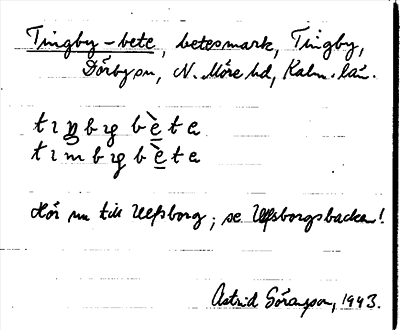 Tingby-bete, betesmark, Tingby,
Dörby sn, N. Möre hd, Kalm. län.
tıŋbyg bè̱te
tımbyg bè̱te
Hör nu till Ulfsborg; se Ulfsborgsbacken!
Astrid Göransson, 1943.